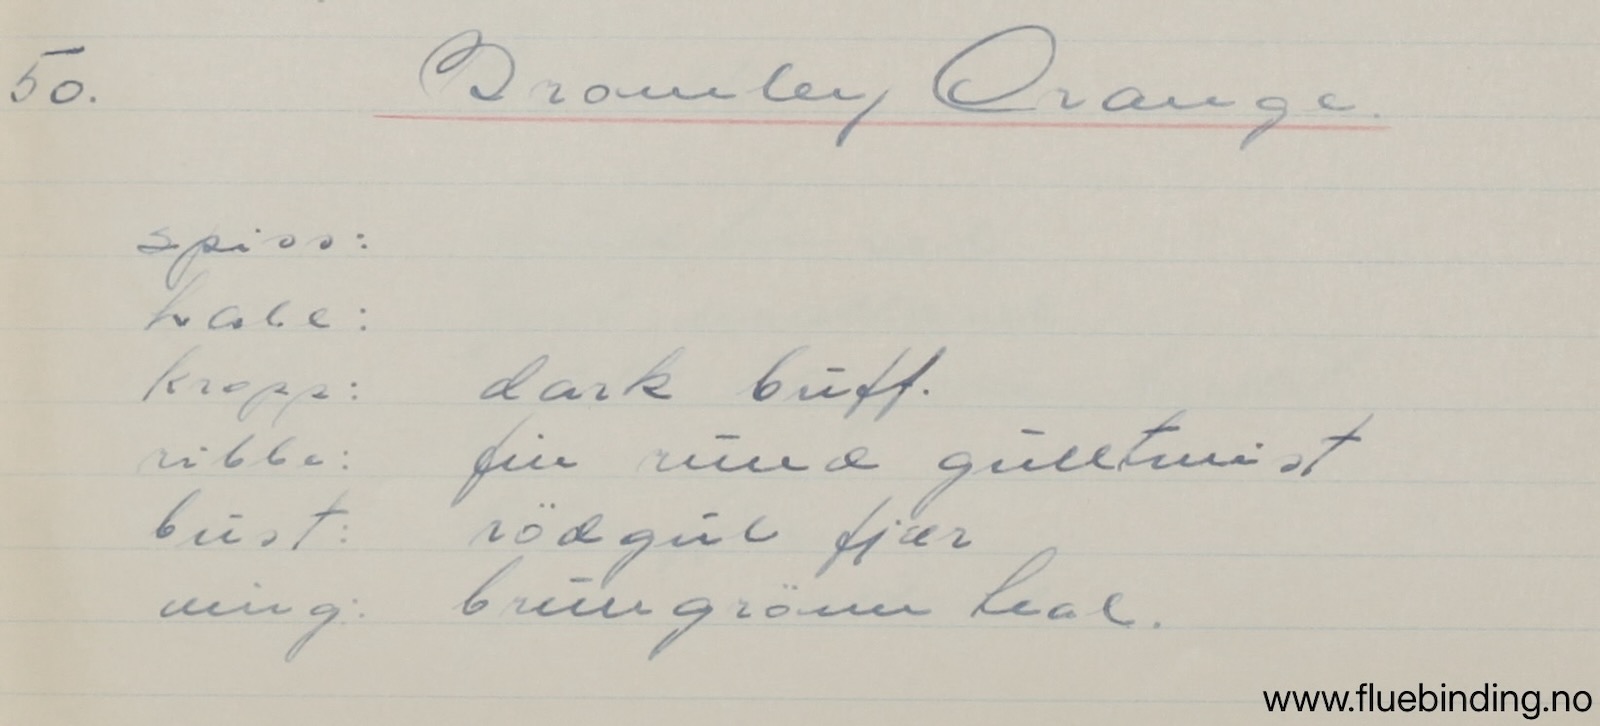 50. Bromley Orange.
spiss:
hale:
kropp: dark buff.
ribbe: fin rund gulltwist
bust: rödgul fjær
ving: brungrönn teal.
www.fluebinding.no